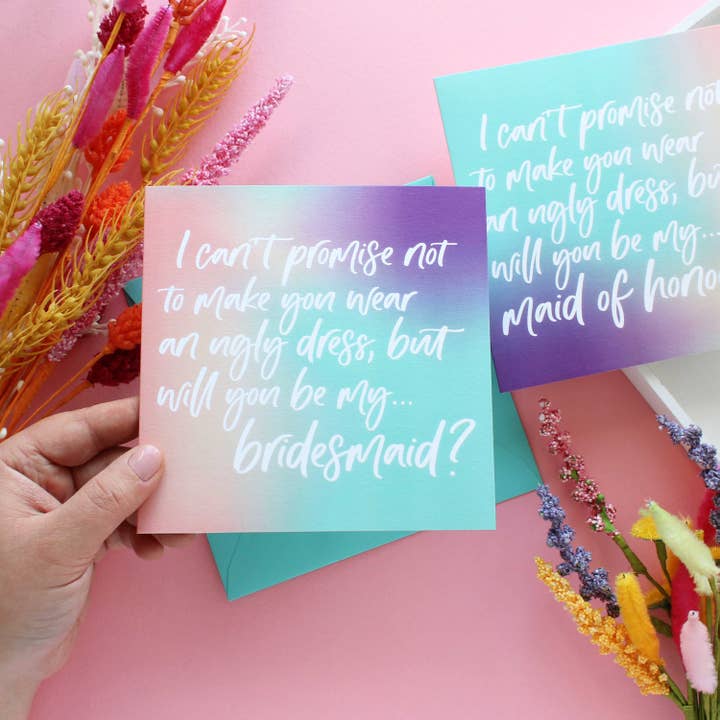 I can't promise not
to make you wear
an ugly dress, but
will you be my...
bridesmaid?
I can't promise not
to make you wear
an ugly dress, but
will you be my...
maid of